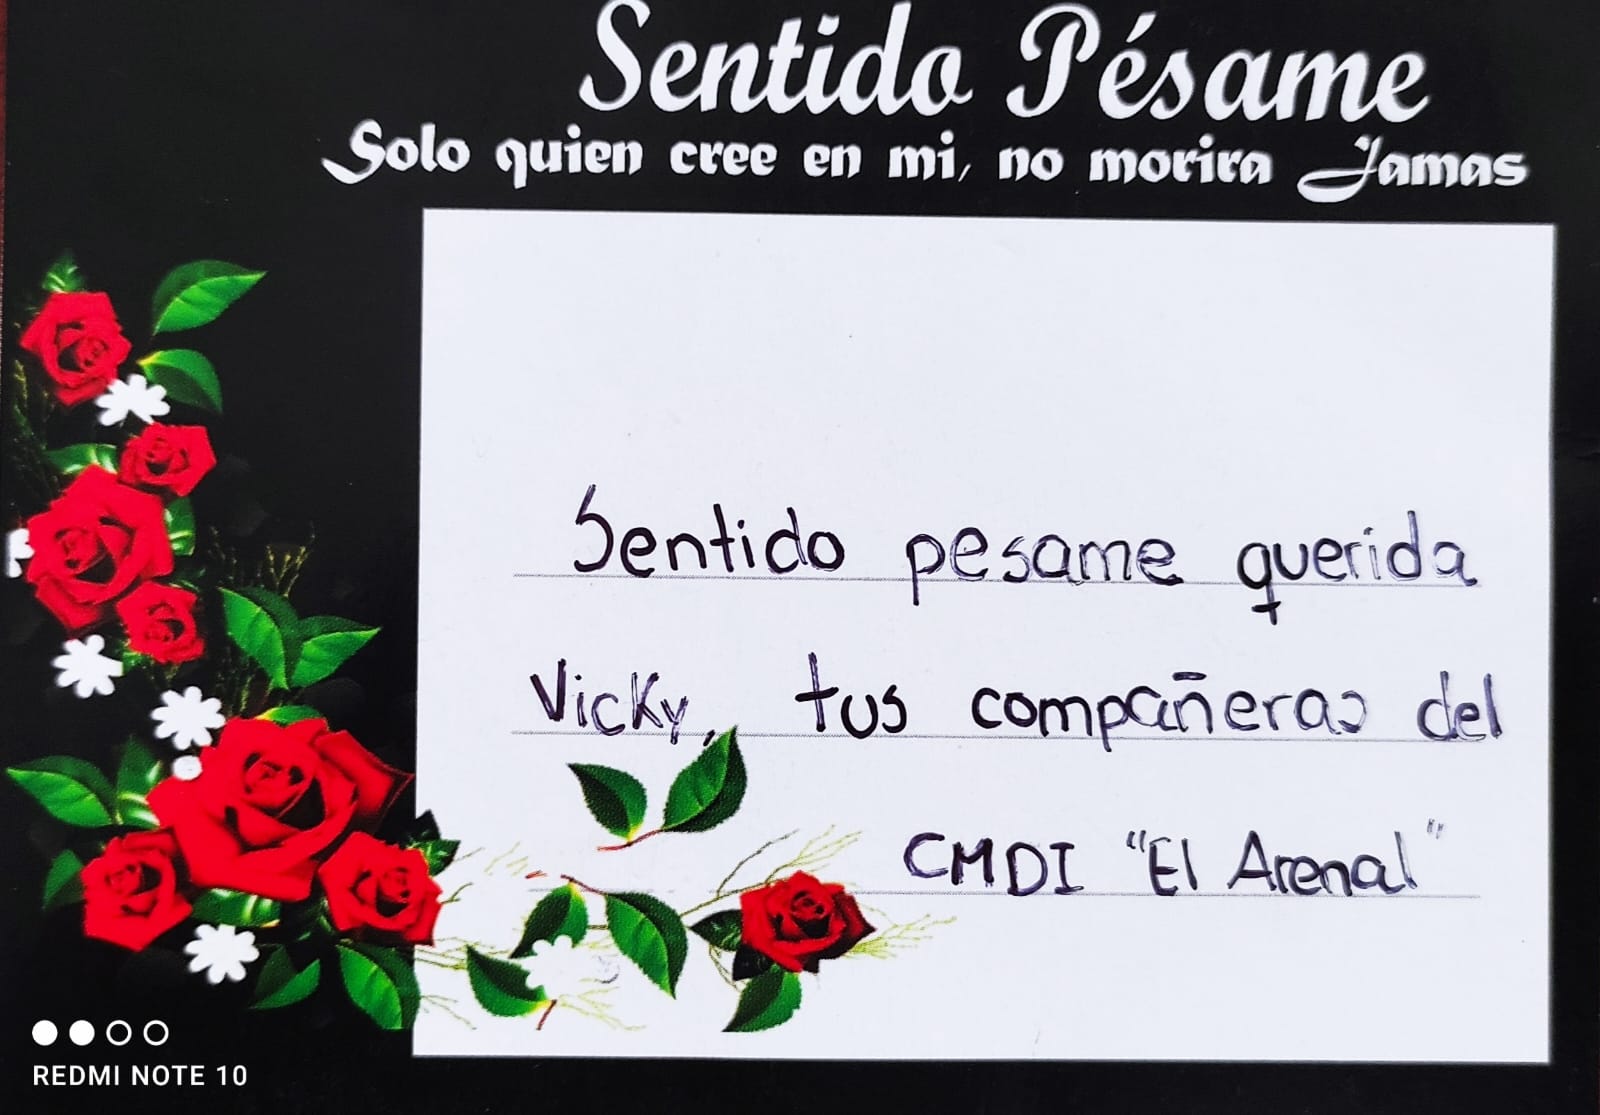 Sentido Pésame
Solo quien cree en mi, no morira Jamas
Sentido pesame querida
Vicky, tus compañeras del
CMDI "El Arenal"
REDMI NOTE 10